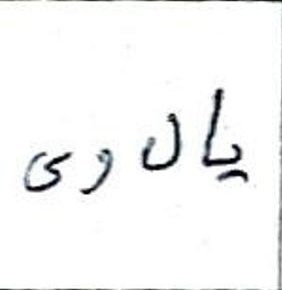 یال وی